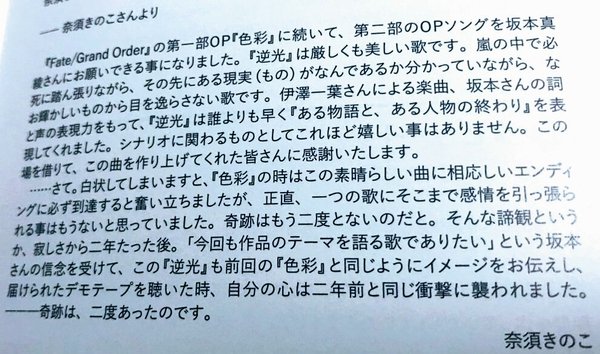 ――奈須きのこさんより
『Fate/Grand Order』の第一部OP『色彩』に続いて、第二部のOPソングを坂本真
綾さんにお願いできる事になりました。『逆光』は厳しくも美しい歌です。嵐の中で必
死に踏ん張りながら、その先にある現実（もの）がなんであるか分かっていながら、な
お輝かしいものから目を逸らさない歌です。伊澤一葉さんによる楽曲、坂本さんの詞
と声の表現力をもって、『逆光』は誰よりも早く『ある物語と、ある人物の終わり』を表
現してくれました。シナリオに関わるものとしてこれほど嬉しい事はありません。この
場を借りて、この曲を作り上げてくれた皆さんに感謝いたします。
……さて。白状してしまいますと、『色彩』の時はこの素晴らしい曲に相応しいエンディ
ングに必ず到達すると奮い立ちましたが、正直、一つの歌にそこまで感情を引っ張ら
れる事はもうないと思っていました。奇跡はもう二度とないのだと。そんな諦観という
か、寂しさから二年たった後。「今回も作品のテーマを語る歌でありたい」という坂本
さんの信念を受けて、この『逆光』も前回の『色彩』と同じようにイメージをお伝えし、
届けられたデモテープを聴いた時、自分の心は二年前と同じ衝撃に襲われました。
―――奇跡は、二度あったのです。
奈須きのこ